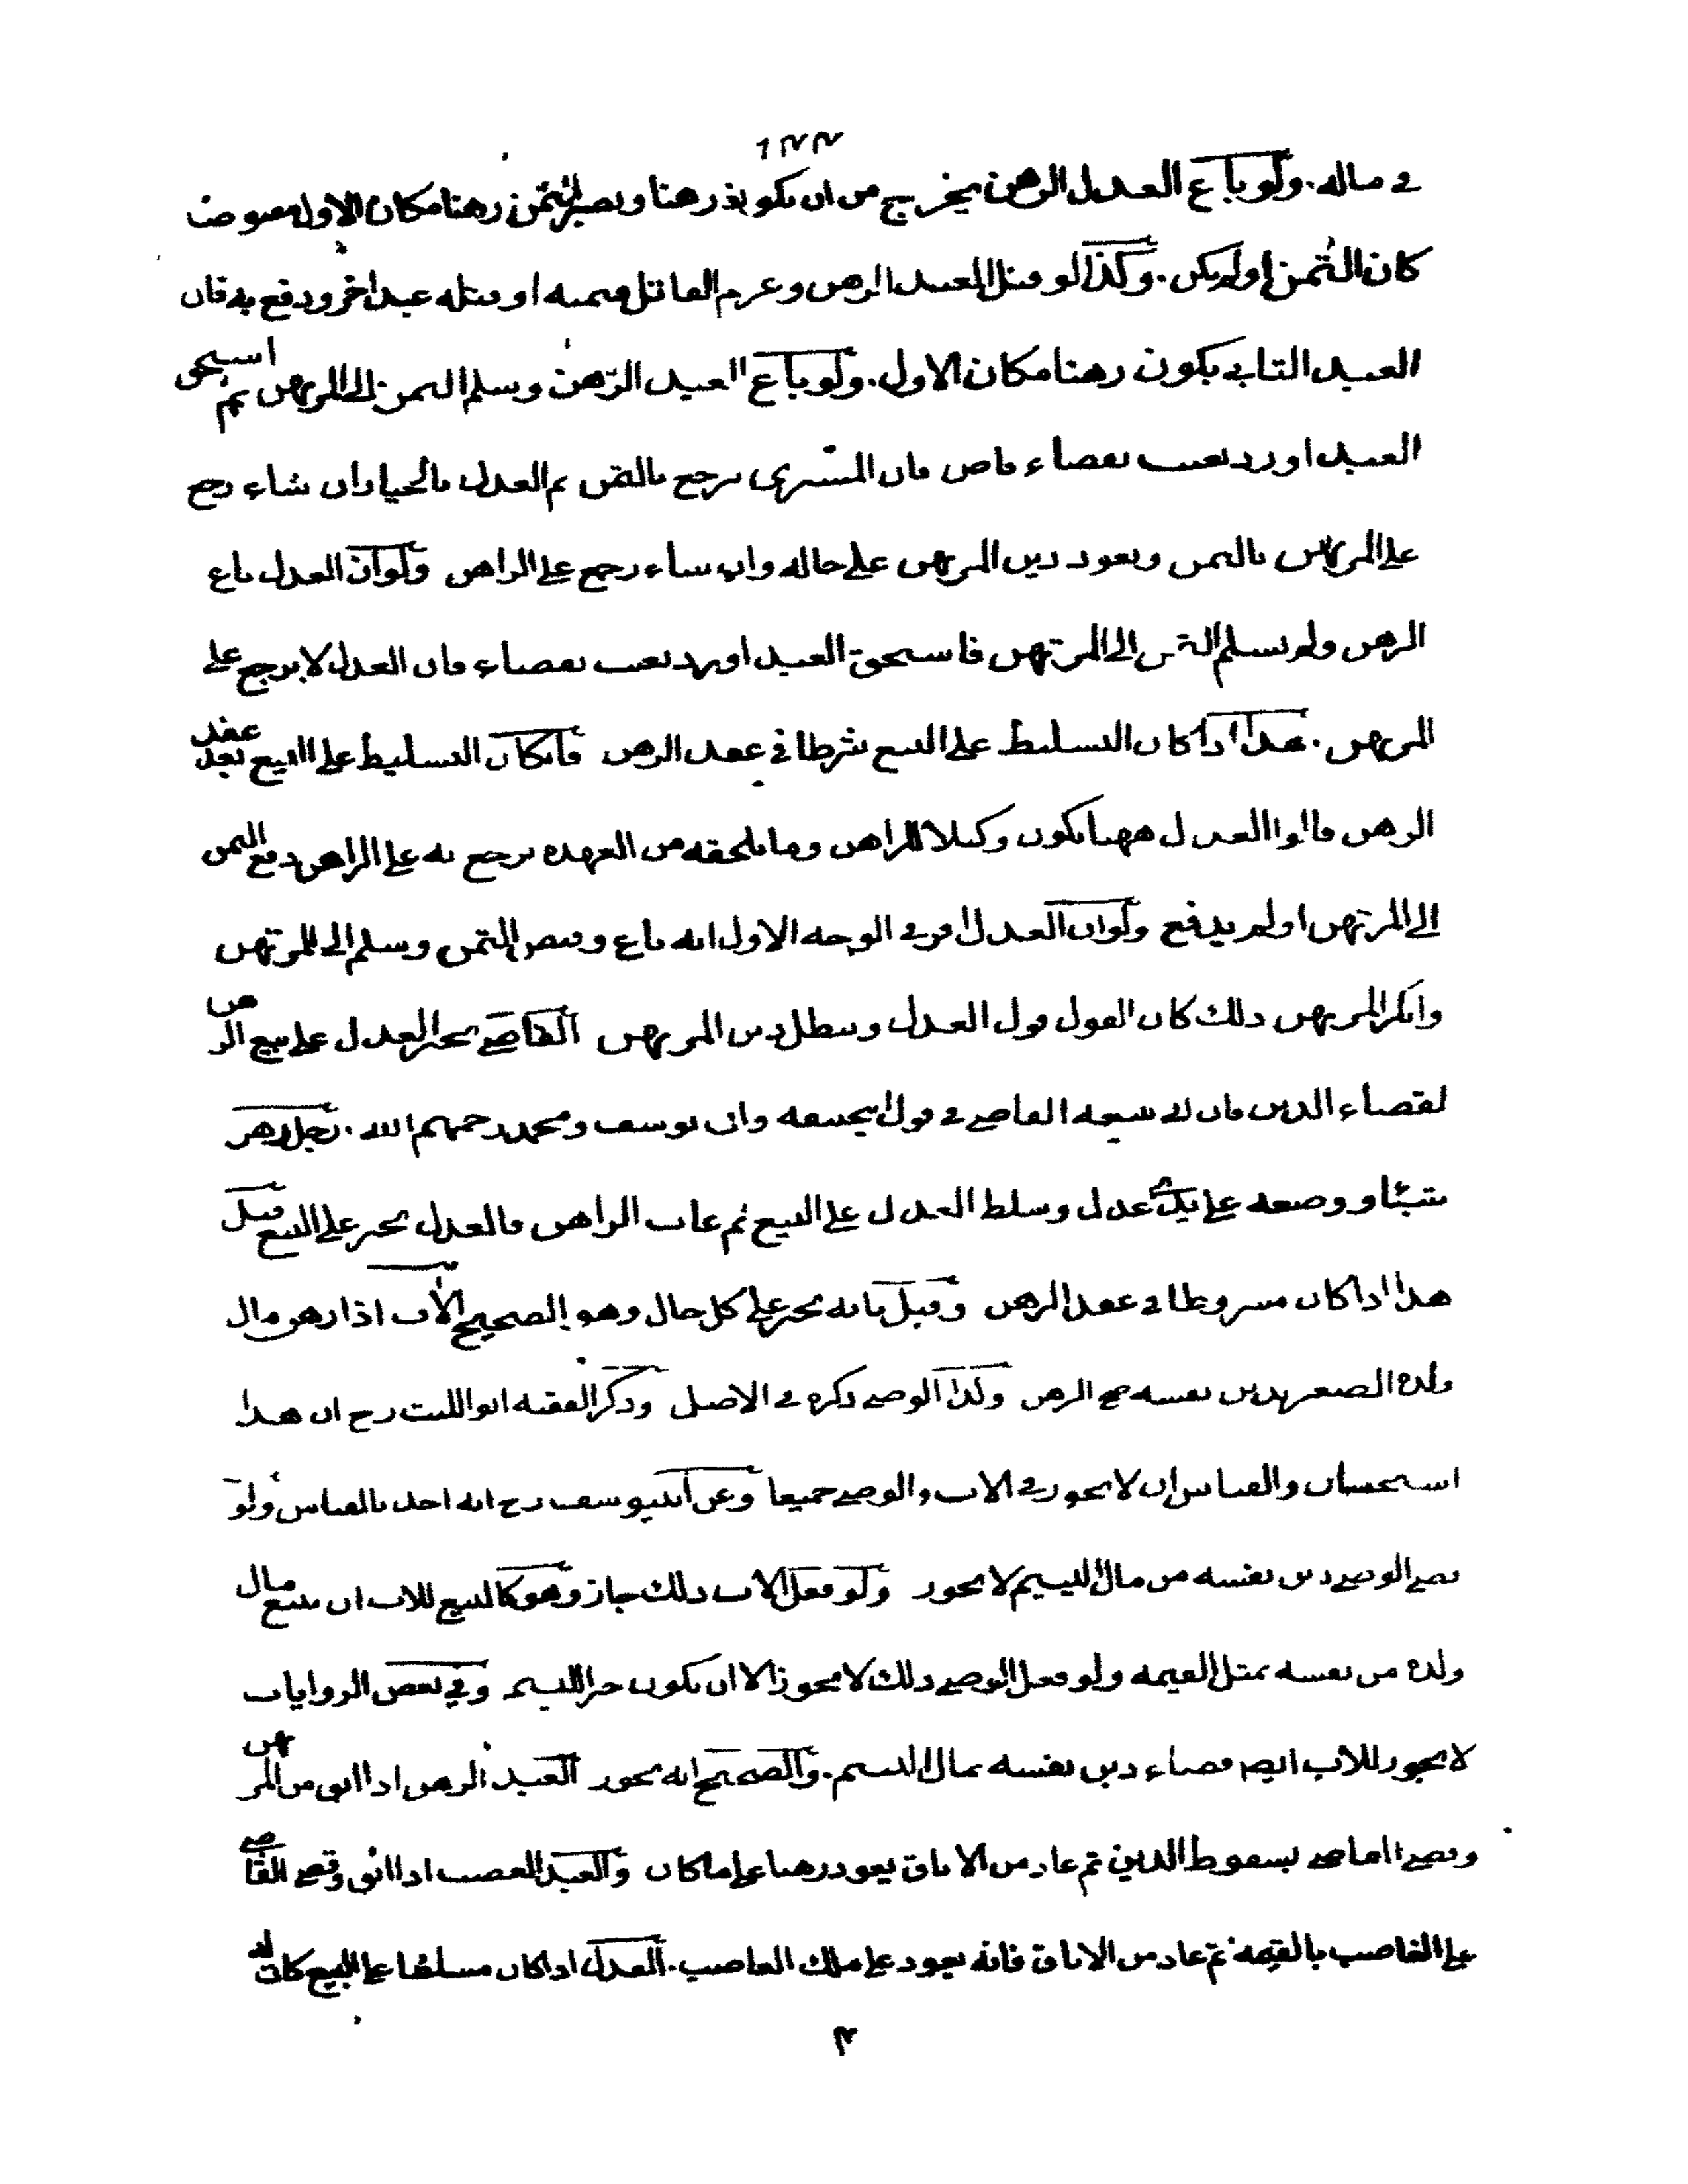 ١٢٢
في ماله. ولو باع العدل الرهن يخرج من ان يكون رهنا ويصير الثمن رهنا مكان الاول مقبوضا
كان الثمن او لم يكن. وكذا لو قتل العبد الرهن وغرم القاتل قيمته او قتله عبد اخر ودفع به فان
العبد الثاني يكون رهنا مكان الاول. ولو باع العبد الرهن وسلم الثمن الى المرتهن ثم استحق
العبد او رد بعيب بقضاء قاض فان المشترى يرجع بالثمن ثم العدل بالخيار ان شاء رجع
على المرتهن بالثمن ويعود دين المرتهن على حاله وان شاء رجع على الراهن ولو ان العدل باع
الرهن ولم يسلم الثمن الى المرتهن فاستحق العبد او رد بعيب بقضاء فان العدل لا يرجع على
المرتهن. هذا اذا كان التسليط على البيع شرطا في عقد الرهن فان كان التسليط على البيع بعد عقد
الرهن قالوا العدل ههنا يكون وكيلا للراهن وما يلحقه من العهدة يرجع به على الراهن دفع الثمن
الى المرتهن او لم يدفع ولو ان العدل اقر في الوجه الاول انه باع وقبض الثمن وسلم الى المرتهن
وانكر المرتهن ذلك كان القول قول العدل وبطل دين المرتهن القاضي يجبر العدل على بيع الرهن
لقضاء الدين فان ابى يبيعه القاضي في قول ابيحنيفه وابى يوسف ومحمد رحمهم الله. رجل رهن
شيئا ووضعه على يدي عدل وسلط العدل على البيع ثم غاب الراهن فالعدل يجبر على البيع قيل
هذا اذا كان مشروطا في عقد الرهن وقيل بانه يجبر على كل حال وهو الصحيح الاب اذا رهن مال
ولده الصغير بدين نفسه صح الرهن وكذا الوصي ذكره في الاصل وذكر الفقيه ابو الليث رح ان هذا
استحسان والقياس ان لا يجوز في الاب والوصي جميعا وعن ابييوسف رح انه اخذ بالقياس ولو
قضى الوصي دين نفسه من مال اليتيم لا يجوز ولو فعل الاب ذلك جاز وهو كالبيع للاب ان يبيع مال
ولده من نفسه بمثل القيمه ولو فعل الوصي ذلك لا يجوز الا ان يكون خيرا لليتيم وفي بعض الروايات
لا يجوز للاب ايضا قضاء دين نفسه بمال اليتيم. والصحيح انه يجوز العبد الرهن اذا ابق من المرتهن
وقضى القاضي بسقوط الدين ثم عاد من الاباق يعود رهنا على ما كان والعبد الغصب اذا ابق وقضى القاضي
على الغاصب بالقيمة ثم عاد من الاباق فانه يعود على ملك الغاصب. العدل اذا كان مسلطا على البيع كان له